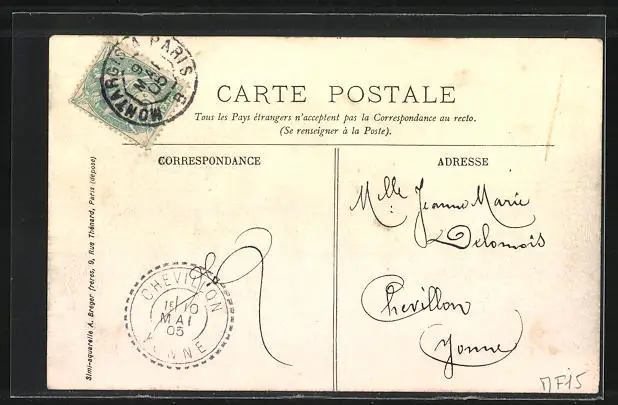 MONTARGIS A PARIS
9
MAI
05
CARTE POSTALE
Tous les Pays étrangers n'acceptent pas la Correspondance au recto.
(Se renseigner à la Poste).
CORRESPONDANCE
ADRESSE
Mlle Jeanne Marie
Delomois
Chevillon
Yonne
CHEVILLON
1E 10
MAI
05
YONNE
Simi-aquarelle A. Breger freres, 9, Rue Thénard, Paris (déposé)
MF15